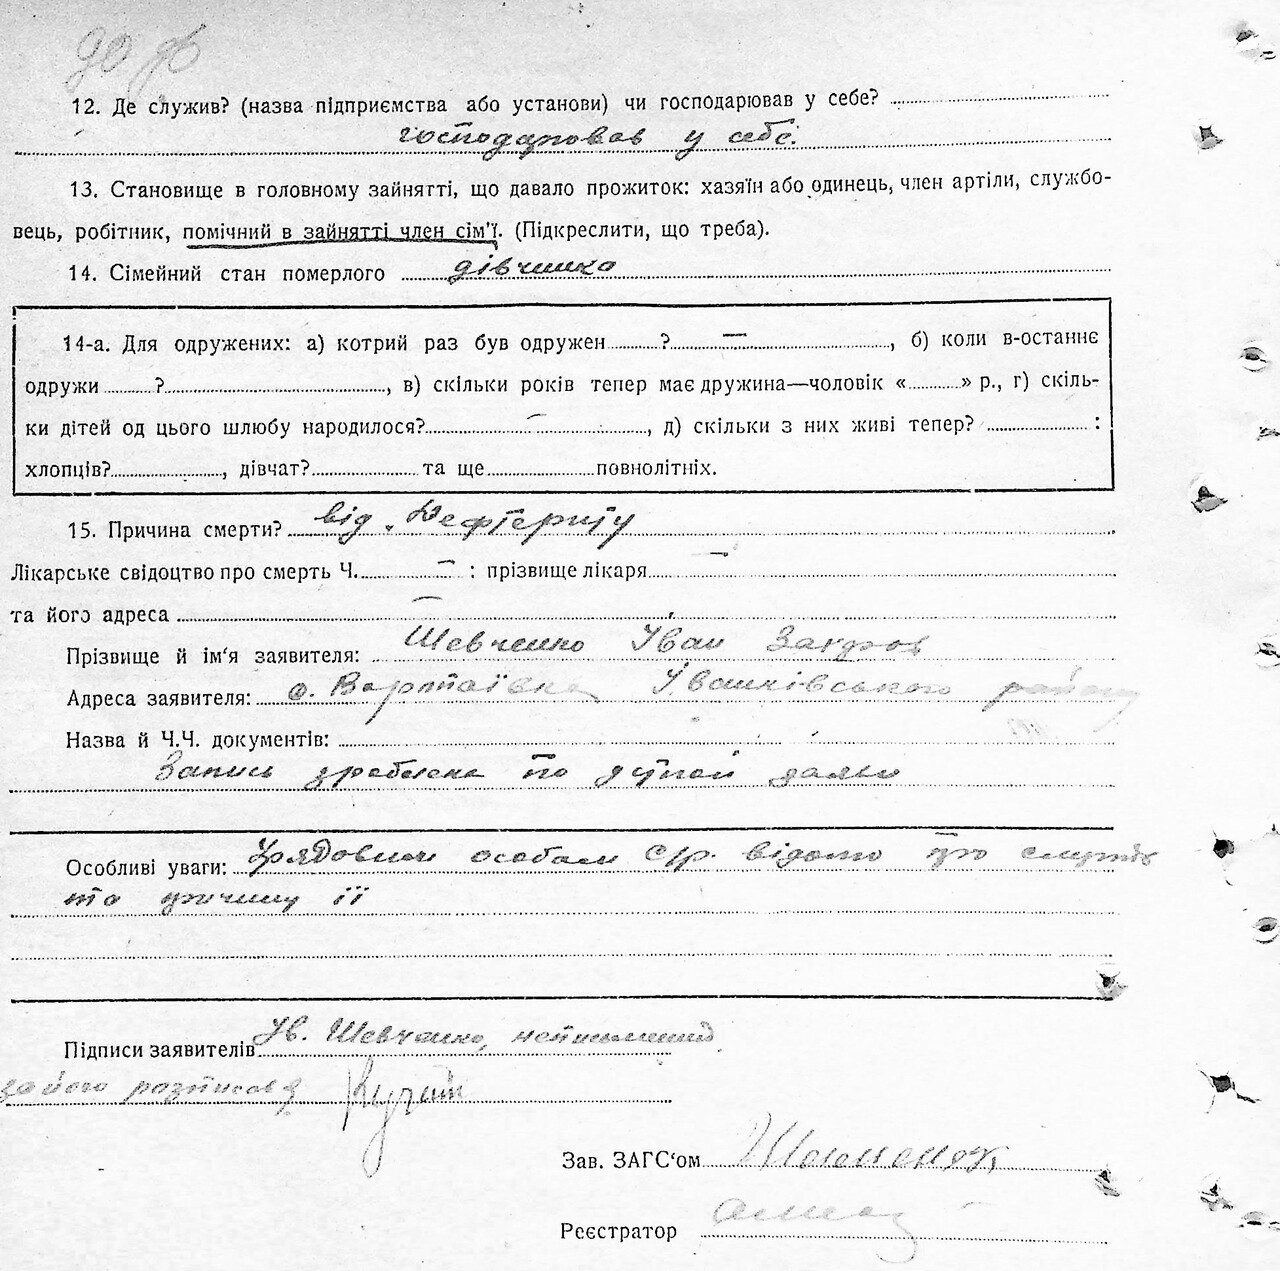 до
12. Де служив? (назва підприємства або установи) чи господарював у себе?
господарював у себе.
13. Становище в головному зайнятті, що давало прожиток: хазяїн або одинець, член артіли, службо-
вець, робітник, помічний в зайнятті член сім'ї. (Підкреслити, що треба).
14. Сімейний стан померлого дівчинка
14-а. Для одружених: а) котрий раз був одружен ? —, б) коли в-останнє
одружи ?, в) скільки років тепер має дружина—чоловік « » р., г) скіль-
ки дітей од цього шлюбу народилося? —, д) скільки з них живі тепер? :
хлопців?, дівчат? та ще повнолітніх.
15. Причина смерти? від Дефтериту
Лікарське свідоцтво про смерть Ч. — : прізвище лікаря —
та його адреса —
Прізвище й ім'я заявителя: Шевченко Іван Захаров
Адреса заявителя: с. Івашківського району
Назва й Ч.Ч. документів:
Запись зроблена по устной заяви
Особливі уваги: Урядовим особам с/р. відомо про смерть
та причину її
Підписи заявителів Ів. Шевченко, неписьменний
за його розписався
Зав. ЗАГС'ом
Реєстратор